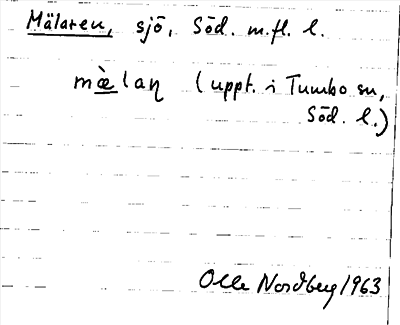 Mälaren, sjö, Söd. m.fl. l.
mæ̀laɳ (uppt. i Tumbo sn,
Söd. l.)
Olle Nordberg 1963